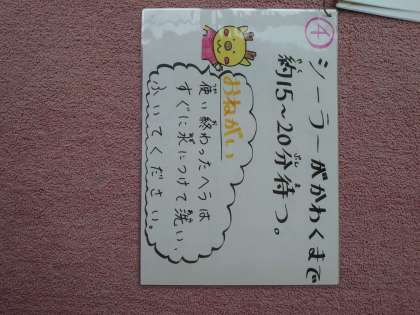 ④
シーラーがかわくまで
約15～20分待つ。
やく
ぷん
ま
おねがい
使い終わったヘラは
すぐに水につけて洗い、
ふいてください。